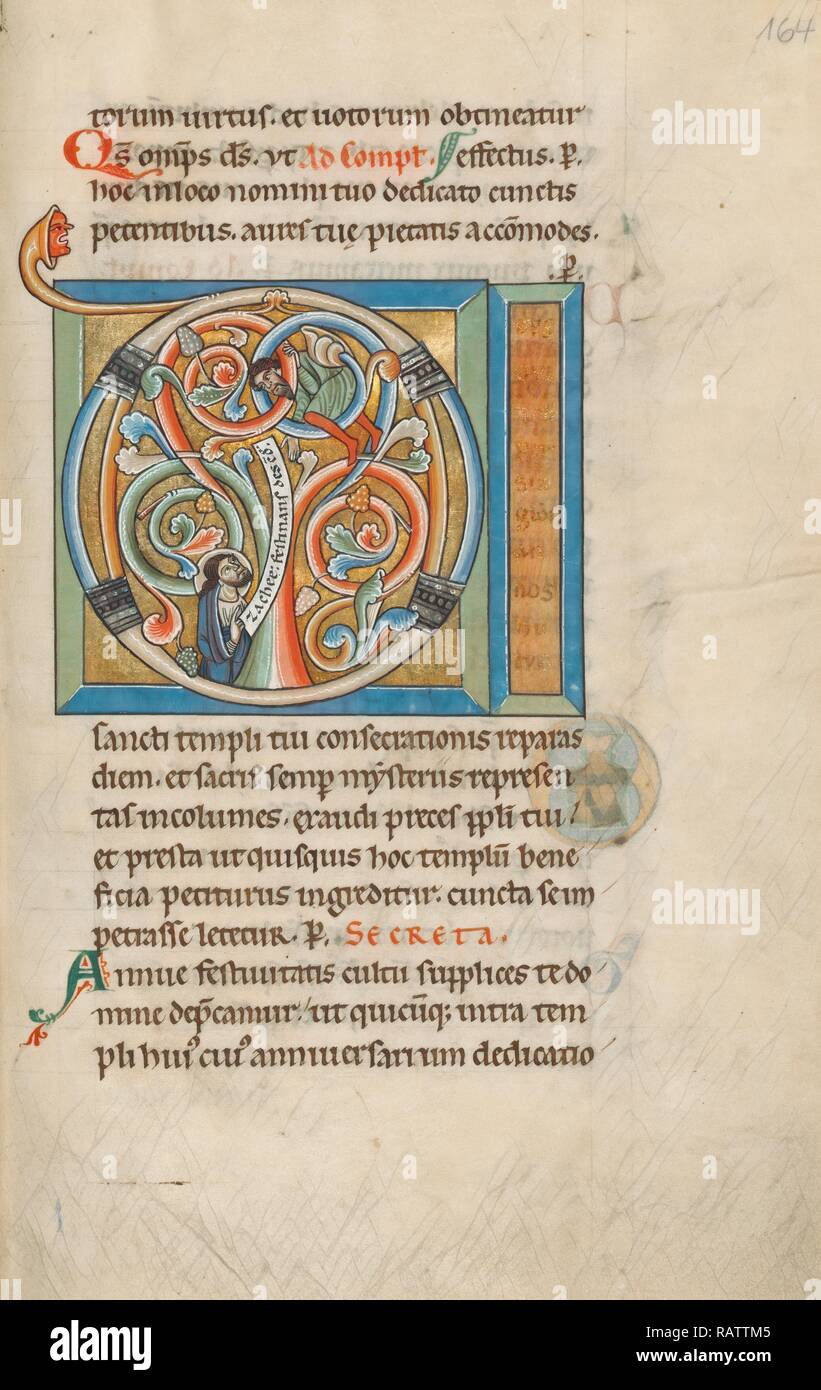 164
torum uirtus. et uotorum obtineatur
Q̄s om̄ps d̄s. vt Ad Compł. effectus. P̄.
hoc in loco nomini tuo dedicato cunctis
petentibus. aures tuę pietatis accōmodes.
.P̄.
zachee: festinans
sancti templi tui consecrationis reparas
diem. et sacris semp̄ mẏsteriis represen
tas incolumes. exaudi preces pp̄li tui/
et presta ut quisquis hoc templū bene
ficia petiturus ingreditur. cuncta se im
petrasse letetur. P̄. Secreta.
Annue festiuitatis cultu supplices te do
mine dep̄camur/ ut quicūq; intra tem
pli huiꝰ cuiꝰ anniuersarium dedicatio
alamy
alamy
alamy
a
a
a
a
a
alamy
Image ID: RATTM5
www.alamy.com